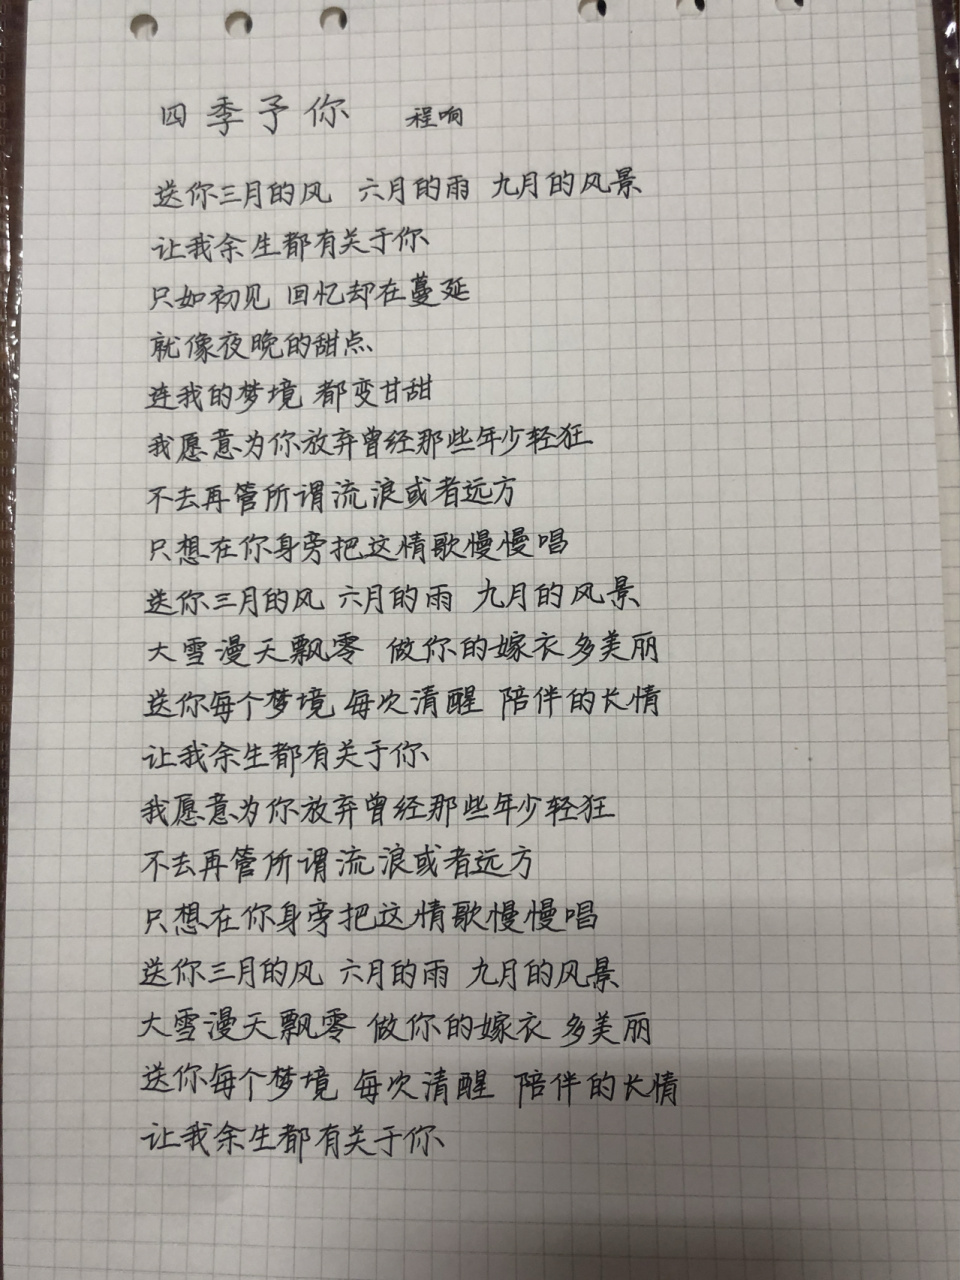 四季予你 程响
送你三月的风 六月的雨 九月的风景
让我余生都有关于你
只如初见 回忆却在蔓延
就像夜晚的甜点
连我的梦境 都变甘甜
我愿意为你放弃曾经那些年少轻狂
不去再管所谓流浪或者远方
只想在你身旁把这情歌慢慢唱
送你三月的风 六月的雨 九月的风景
大雪漫天飘零 做你的嫁衣多美丽
送你每个梦境 每次清醒 陪伴的长情
让我余生都有关于你
我愿意为你放弃曾经那些年少轻狂
不去再管所谓流浪或者远方
只想在你身旁把这情歌慢慢唱
送你三月的风 六月的雨 九月的风景
大雪漫天飘零 做你的嫁衣 多美丽
送你每个梦境 每次清醒 陪伴的长情
让我余生都有关于你